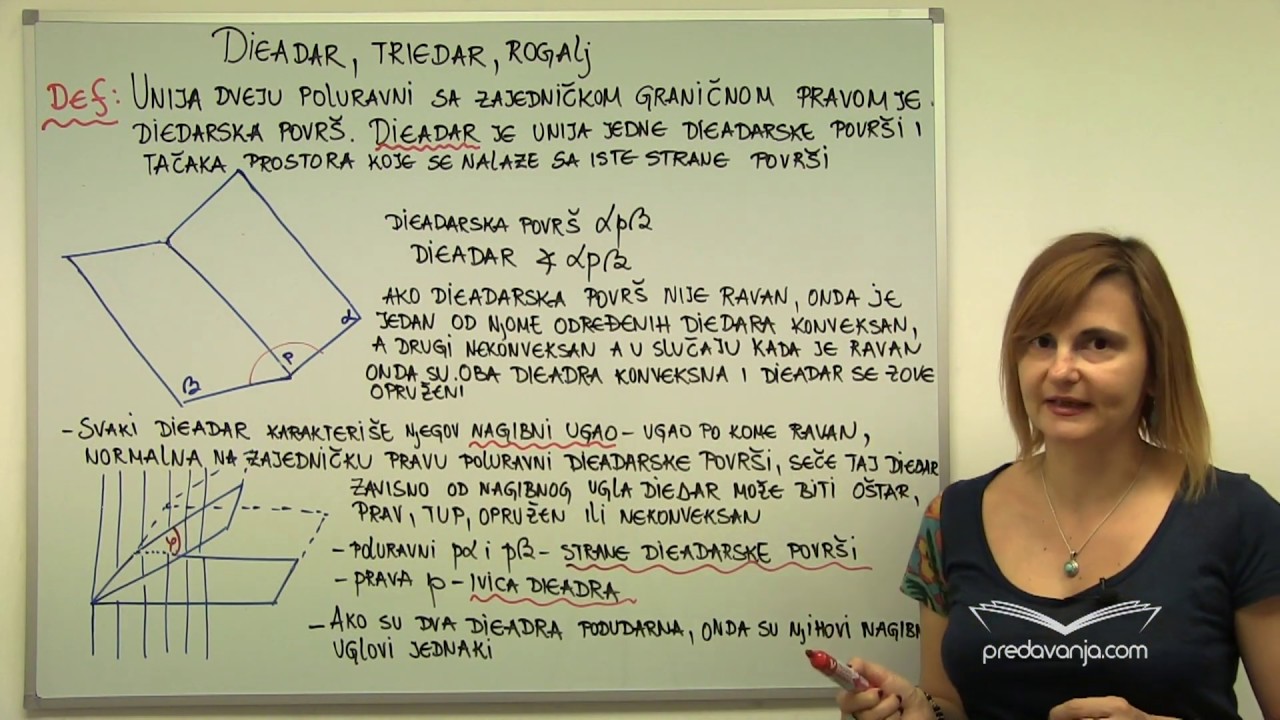 DIEADAR, TRIEDAR, ROGALJ
DEF: UNIJA DVEJU POLURAVNI SA ZAJEDNIČKOM GRANIČNOM PRAVOM JE
DIEDARSKA POVRŠ. DIEADAR JE UNIJA JEDNE DIEADARSKE POVRŠI I
TAČAKA PROSTORA KOJE SE NALAZE SA ISTE STRANE POVRŠI
DIEADARSKA POVRŠ αpβ
DIEADAR ∢ αpβ
AKO DIEADARSKA POVRŠ NIJE RAVAN, ONDA JE
JEDAN OD NJOME ODREĐENIH DIEDARA KONVEKSAN,
A DRUGI NEKONVEKSAN A U SLUČAJU KADA JE RAVAN
ONDA SU OBA DIEADRA KONVEKSNA I DIEADAR SE ZOVE
OPRUŽENI
α
p
β
- SVAKI DIEADAR KARAKTERIŠE NJEGOV NAGIBNI UGAO - UGAO PO KOME RAVAN,
NORMALNA NA ZAJEDNIČKU PRAVU POLURAVNI DIEADARSKE POVRŠI, SEČE TAJ DIEDAR
ZAVISNO OD NAGIBNOG UGLA DIEDAR MOŽE BITI OŠTAR,
PRAV, TUP, OPRUŽEN ILI NEKONVEKSAN
φ
- POLURAVNI pα i pβ - STRANE DIEADARSKE POVRŠI
- PRAVA p - IVICA DIEADRA
- AKO SU DVA DIEADRA PODUDARNA, ONDA SU NJIHOVI NAGIBN
UGLOVI JEDNAKI
predavanja.com